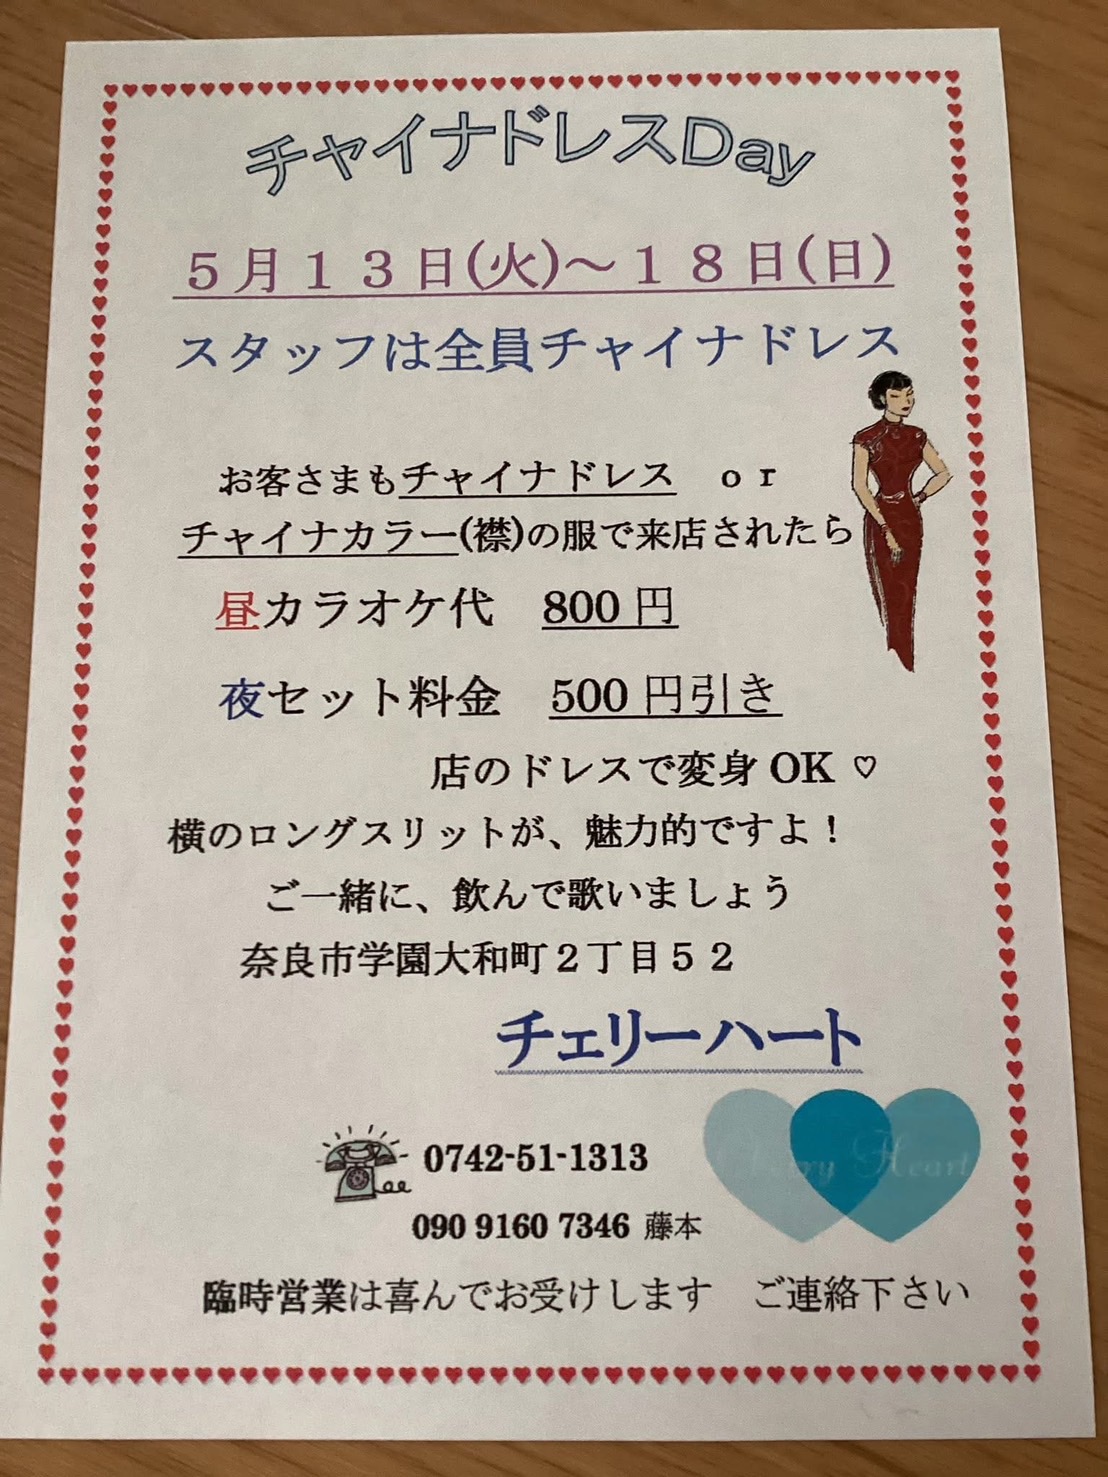 チャイナドレスDay
５月１３日(火)～１８日(日)
スタッフは全員チャイナドレス
お客さまもチャイナドレス　ｏｒ
チャイナカラー(襟)の服で来店されたら
昼カラオケ代　800 円
夜セット料金　500 円引き
店のドレスで変身 OK ♡
横のロングスリットが、魅力的ですよ！
ご一緒に、飲んで歌いましょう
奈良市学園大和町２丁目５２
チェリーハート
Heart
0742-51-1313
090 9160 7346 藤本
臨時営業は喜んでお受けします　ご連絡下さい